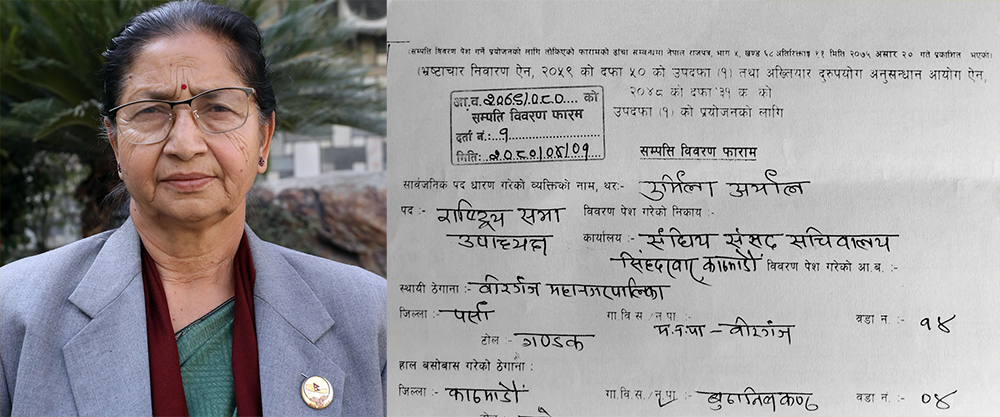 (सम्पत्ति विवरण पेश गर्ने प्रयोजनको लागि तोकिएको फारामको ढाँचा सम्बन्धमा नेपाल राजपत्र, भाग ५, खण्ड ६८ अतिरिक्ताङ्क ११ मिति २०७५ असार २० गते प्रकाशित भएको)
(भ्रष्टाचार निवारण ऐन, २०५९ को दफा ५० को उपदफा (१) तथा अख्तियार दुरुपयोग अनुसन्धान आयोग ऐन,
२०४८ को दफा ३१ क को
उपदफा (१) को प्रयोजनको लागि
आ.व. २०७९/०८० को
सम्पत्ति विवरण फाराम
दर्ता नं.: १
मितिः २०८०/०४/०१
सम्पत्ति विवरण फाराम
सार्वजनिक पद धारण गरेको व्यक्तिको नाम, थरः- उर्मिला अर्याल
पद :- राष्ट्रिय सभा उपाध्यक्ष
विवरण पेश गरेको निकाय :-
कार्यालय :- संघिय संसद सचिवालय
सिंहदरवार काठमाडौं विवरण पेश गरेको आ.ब. :-
स्थायी ठेगाना :- वीरगंज महानगरपालिका
जिल्ला :- पर्सा गा.वि.स./न.पा. :- म.न.पा - वीरगंज वडा न. :- १४
टोल :- गण्डक
हाल बसोबास गरेको ठेगाना :
जिल्ला :- काठमाडौं गा.वि.स./न.पा. :- बुढानिलकण्ठ वडा न. :- ०४